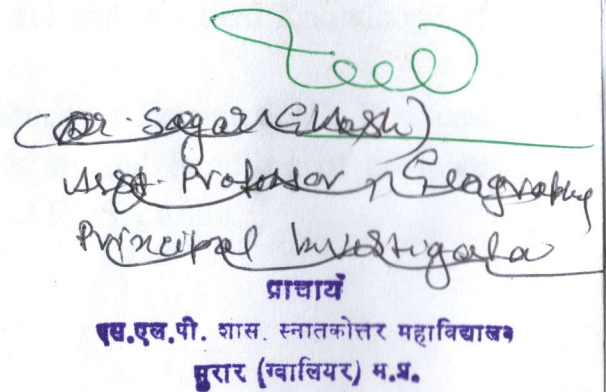 (Dr. Sagarika Ghosh)
Asst. Professor in Geography
Principal Investigator
प्राचार्य
एस.एल.पी. शास. स्नातकोत्तर महाविद्यालय
मुरार (ग्वालियर) म.प्र.